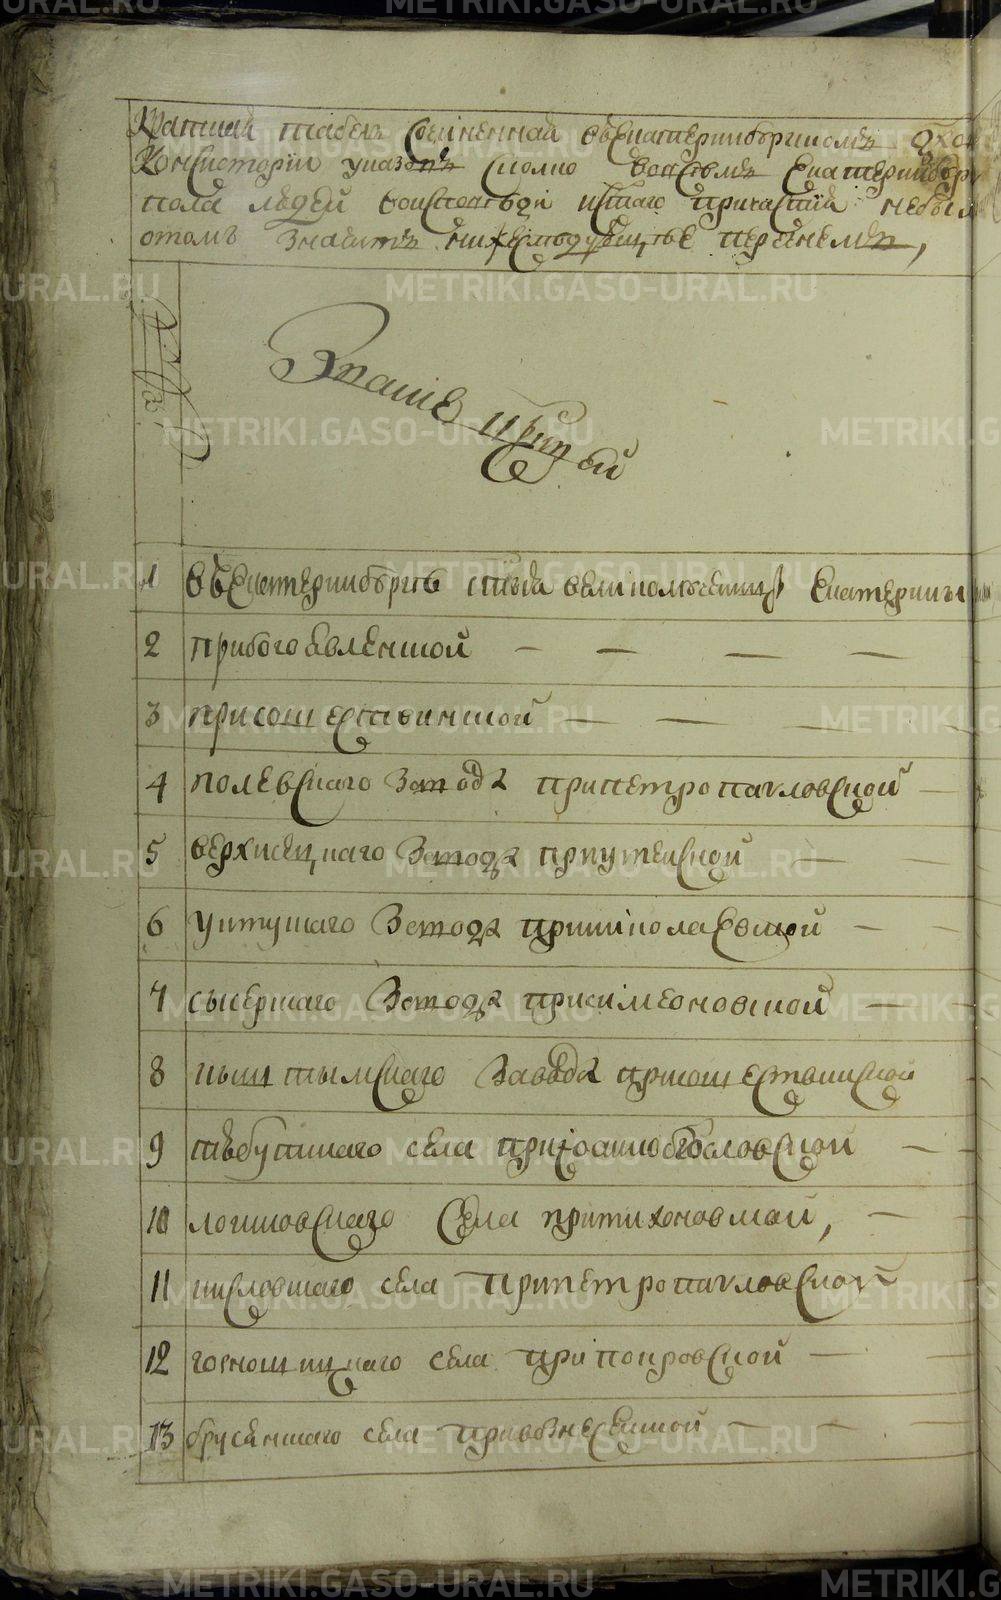 Краткий табель сочиненная въ Екатеринбургскомъ Духов
Консистории указомъ сколко во всѣмъ Екатеринбур
пола людей во исповѣди и стаго причастия небыл
отомъ значитъ ниже следующѣе перечнемъ,
Звание церквей
1 въ Екатеринбурге стыя великомученицы Екатерины
2 при богоявленской
3 при сошественской
4 полевскаго завода при петропавловской
5 верхисецкаго завода при успенской
6 уктускаго завода при николаевской
7 сысерскаго завода при симеоновской
8 кыштымскаго завода при сошественской
9 села при иоаннобогословской
10 логиновскаго села при тихоновской,
11 кисловскаго села при петропавловской
12 горнощицкаго села при покровской
13 брусянскаго села при вознесенской
METRIKI.GASO-URAL.RU